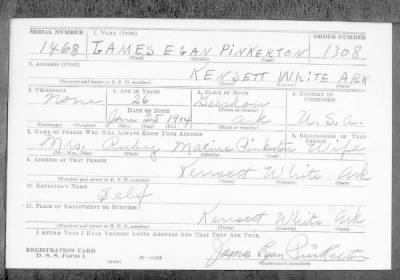 SERIAL NUMBER 1. NAME (Print) ORDER NUMBER
1468 JAMES EGAN PINKERTON 1308
(First) (Middle) (Last)
2. ADDRESS (Print)
KENSETT WHITE ARK
(Number and street or R. F. D. number) (Town) (County) (State)
3. TELEPHONE 4. AGE IN YEARS 5. PLACE OF BIRTH 6. COUNTRY OF CITIZENSHIP
None 26 Gurdon
DATE OF BIRTH (Town or county)
Jan 25 1914 Ark U.S.A.
(Exchange) (Number) (Mo.) (Day) (Yr.) (State or country)
7. NAME OF PERSON WHO WILL ALWAYS KNOW YOUR ADDRESS 8. RELATIONSHIP OF THAT PERSON
Mrs. Ruby Maxine Pinkerton Wife
(Mr., Mrs., Miss) (First) (Middle) (Last)
9. ADDRESS OF THAT PERSON
Kensett White Ark
(Number and street or R. F. D. number) (Town) (County) (State)
10. EMPLOYER'S NAME
Self
11. PLACE OF EMPLOYMENT OR BUSINESS
Kensett White Ark
(Number and street or R. F. D. number) (Town) (County) (State)
I AFFIRM THAT I HAVE VERIFIED ABOVE ANSWERS AND THAT THEY ARE TRUE.
REGISTRATION CARD
D. S. S. Form 1 (over) James Egan Pinkerton
(Registrant's signature)